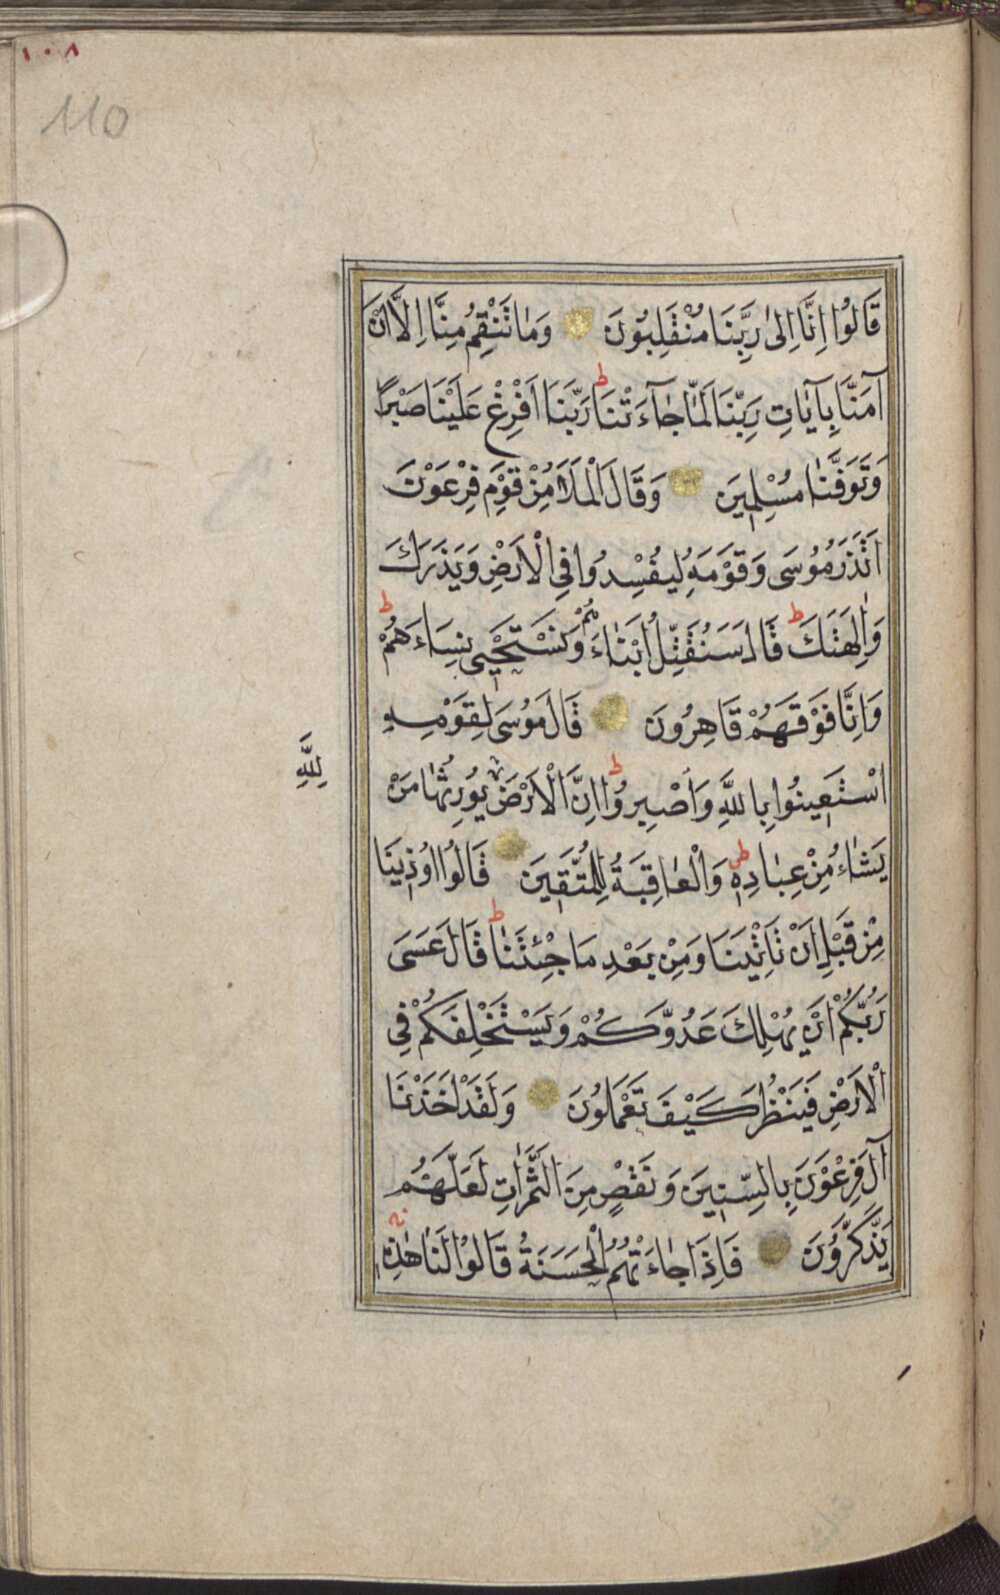 ١٠٨
110
قَالُوا اِنَّا اِلٰى رَبِّنَا مُنْقَلِبُونَ وَمَا تَنْقِمُ مِنَّا اِلَّا اَنْ
آمَنَّا بِآيَاتِ رَبِّنَا لَمَّا جَآءَتْنَا ط رَبَّنَا اَفْرِغْ عَلَيْنَا صَبْرًا
وَتَوَفَّنَا مُسْلِمِينَ وَقَالَ الْمَلَاُ مِنْ قَوْمِ فِرْعَوْنَ
اَتَذَرُ مُوسَى وَقَوْمَهُ لِيُفْسِدُوا فِي الْاَرْضِ وَيَذَرَكَ
وَاٰلِهَتَكَ ط قَالَ سَنُقَتِّلُ اَبْنَاءَهُمْ وَنَسْتَحْيِى نِسَاءَهُمْ ط
وَاِنَّا فَوْقَهُمْ قَاهِرُونَ قَالَ مُوسَى لِقَوْمِهِ
اسْتَعِينُوا بِاللَّهِ وَاصْبِرُوا ط اِنَّ الْاَرْضَ يُورِثُهَا مَنْ
لِلَّهِ
يَشَاءُ مِنْ عِبَادِهِ ط وَالْعَاقِبَةُ لِلْمُتَّقِينَ قَالُوا اُوذِينَا
مِنْ قَبْلِ اَنْ تَاْتِيَنَا وَمِنْ بَعْدِ مَا جِئْتَنَا ط قَالَ عَسَى
رَبُّكُمْ اَنْ يُهْلِكَ عَدُوَّكُمْ وَيَسْتَخْلِفَكُمْ فِي
الْاَرْضِ فَيَنْظُرَ كَيْفَ تَعْمَلُونَ وَلَقَدْ اَخَذْنَا
آلَ فِرْعَوْنَ بِالسِّنِينَ وَنَقْصٍ مِنَ الثَّمَرَاتِ لَعَلَّهُمْ
يَذَّكَّرُونَ فَاِذَا جَاءَتْهُمُ الْحَسَنَةُ قَالُوا لَنَا هٰذِهِ